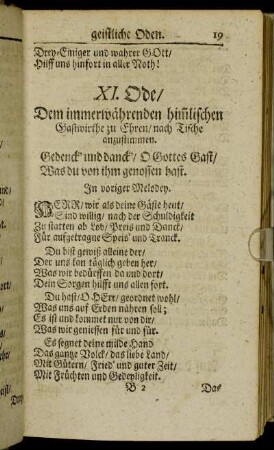 geistliche Oden. 19
Drey-Einiger und wahrer GOtt/
Hilff uns hinfort in aller Noth!
XI. Ode/
Dem immerwährenden him̃lischen
Gastwirthe zu Ehren/ nach Tische
anzustimmen.
Gedenck und danck/ O Gottes Gast/
Was du von ihm genossen hast.
In voriger Melodey.
HERR/ wir als deine Gäste heut/
Sind willig/ nach der Schuldigkeit
Zu statten ab Lob/ Preis und Danck/
Für aufgetragne Speis' und Tranck.
Du bist gewiß alleine der/
Der uns kan täglich geben her/
Was wir bedürffen da und dort/
Dein Sorgen hilfft uns allen fort.
Du hast/ O HErr/ geordnet wohl/
Was uns auf Erden nähren soll;
Es ist und kommet nur von dir/
Was wir geniessen für und für.
Es segnet deine milde Hand
Das gantze Volck/ das liebe Land/
Mit Gütern/ Fried' und guter Zeit/
Mit Früchten und Gedeyligkeit.
B 2 Das